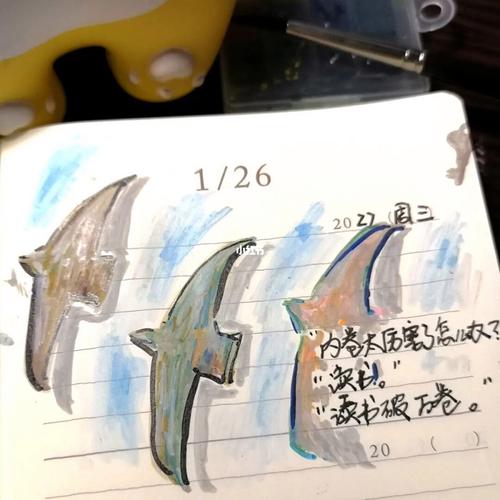 1/26
2022 周三
小红书
内卷太厉害了怎么办?
"读书。"
"读书破万卷。"
20 ( )